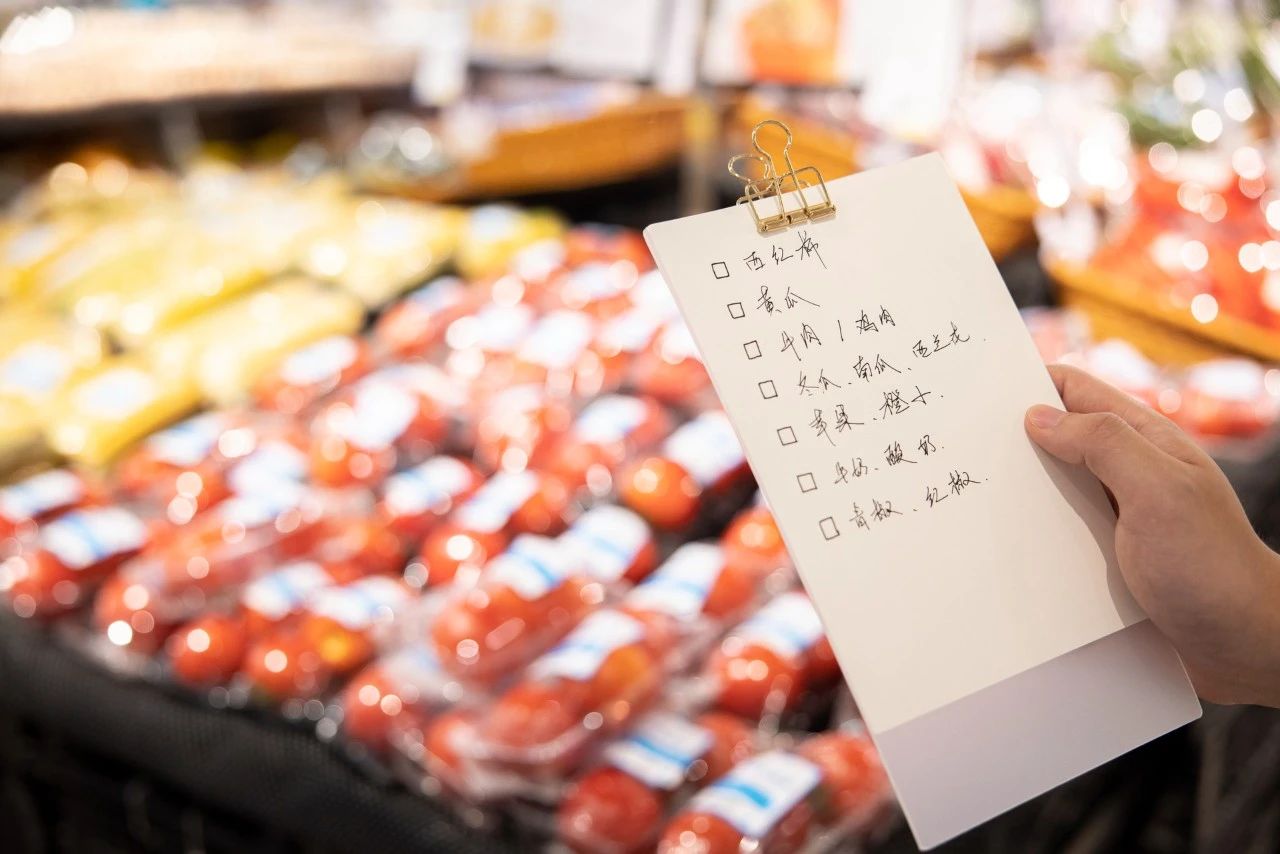 □ 西红柿
□ 黄瓜
□ 牛肉 / 鸡肉
□ 冬瓜、南瓜、西兰花.
□ 苹果、橙子.
□ 牛奶、酸奶.
□ 青椒、红椒.